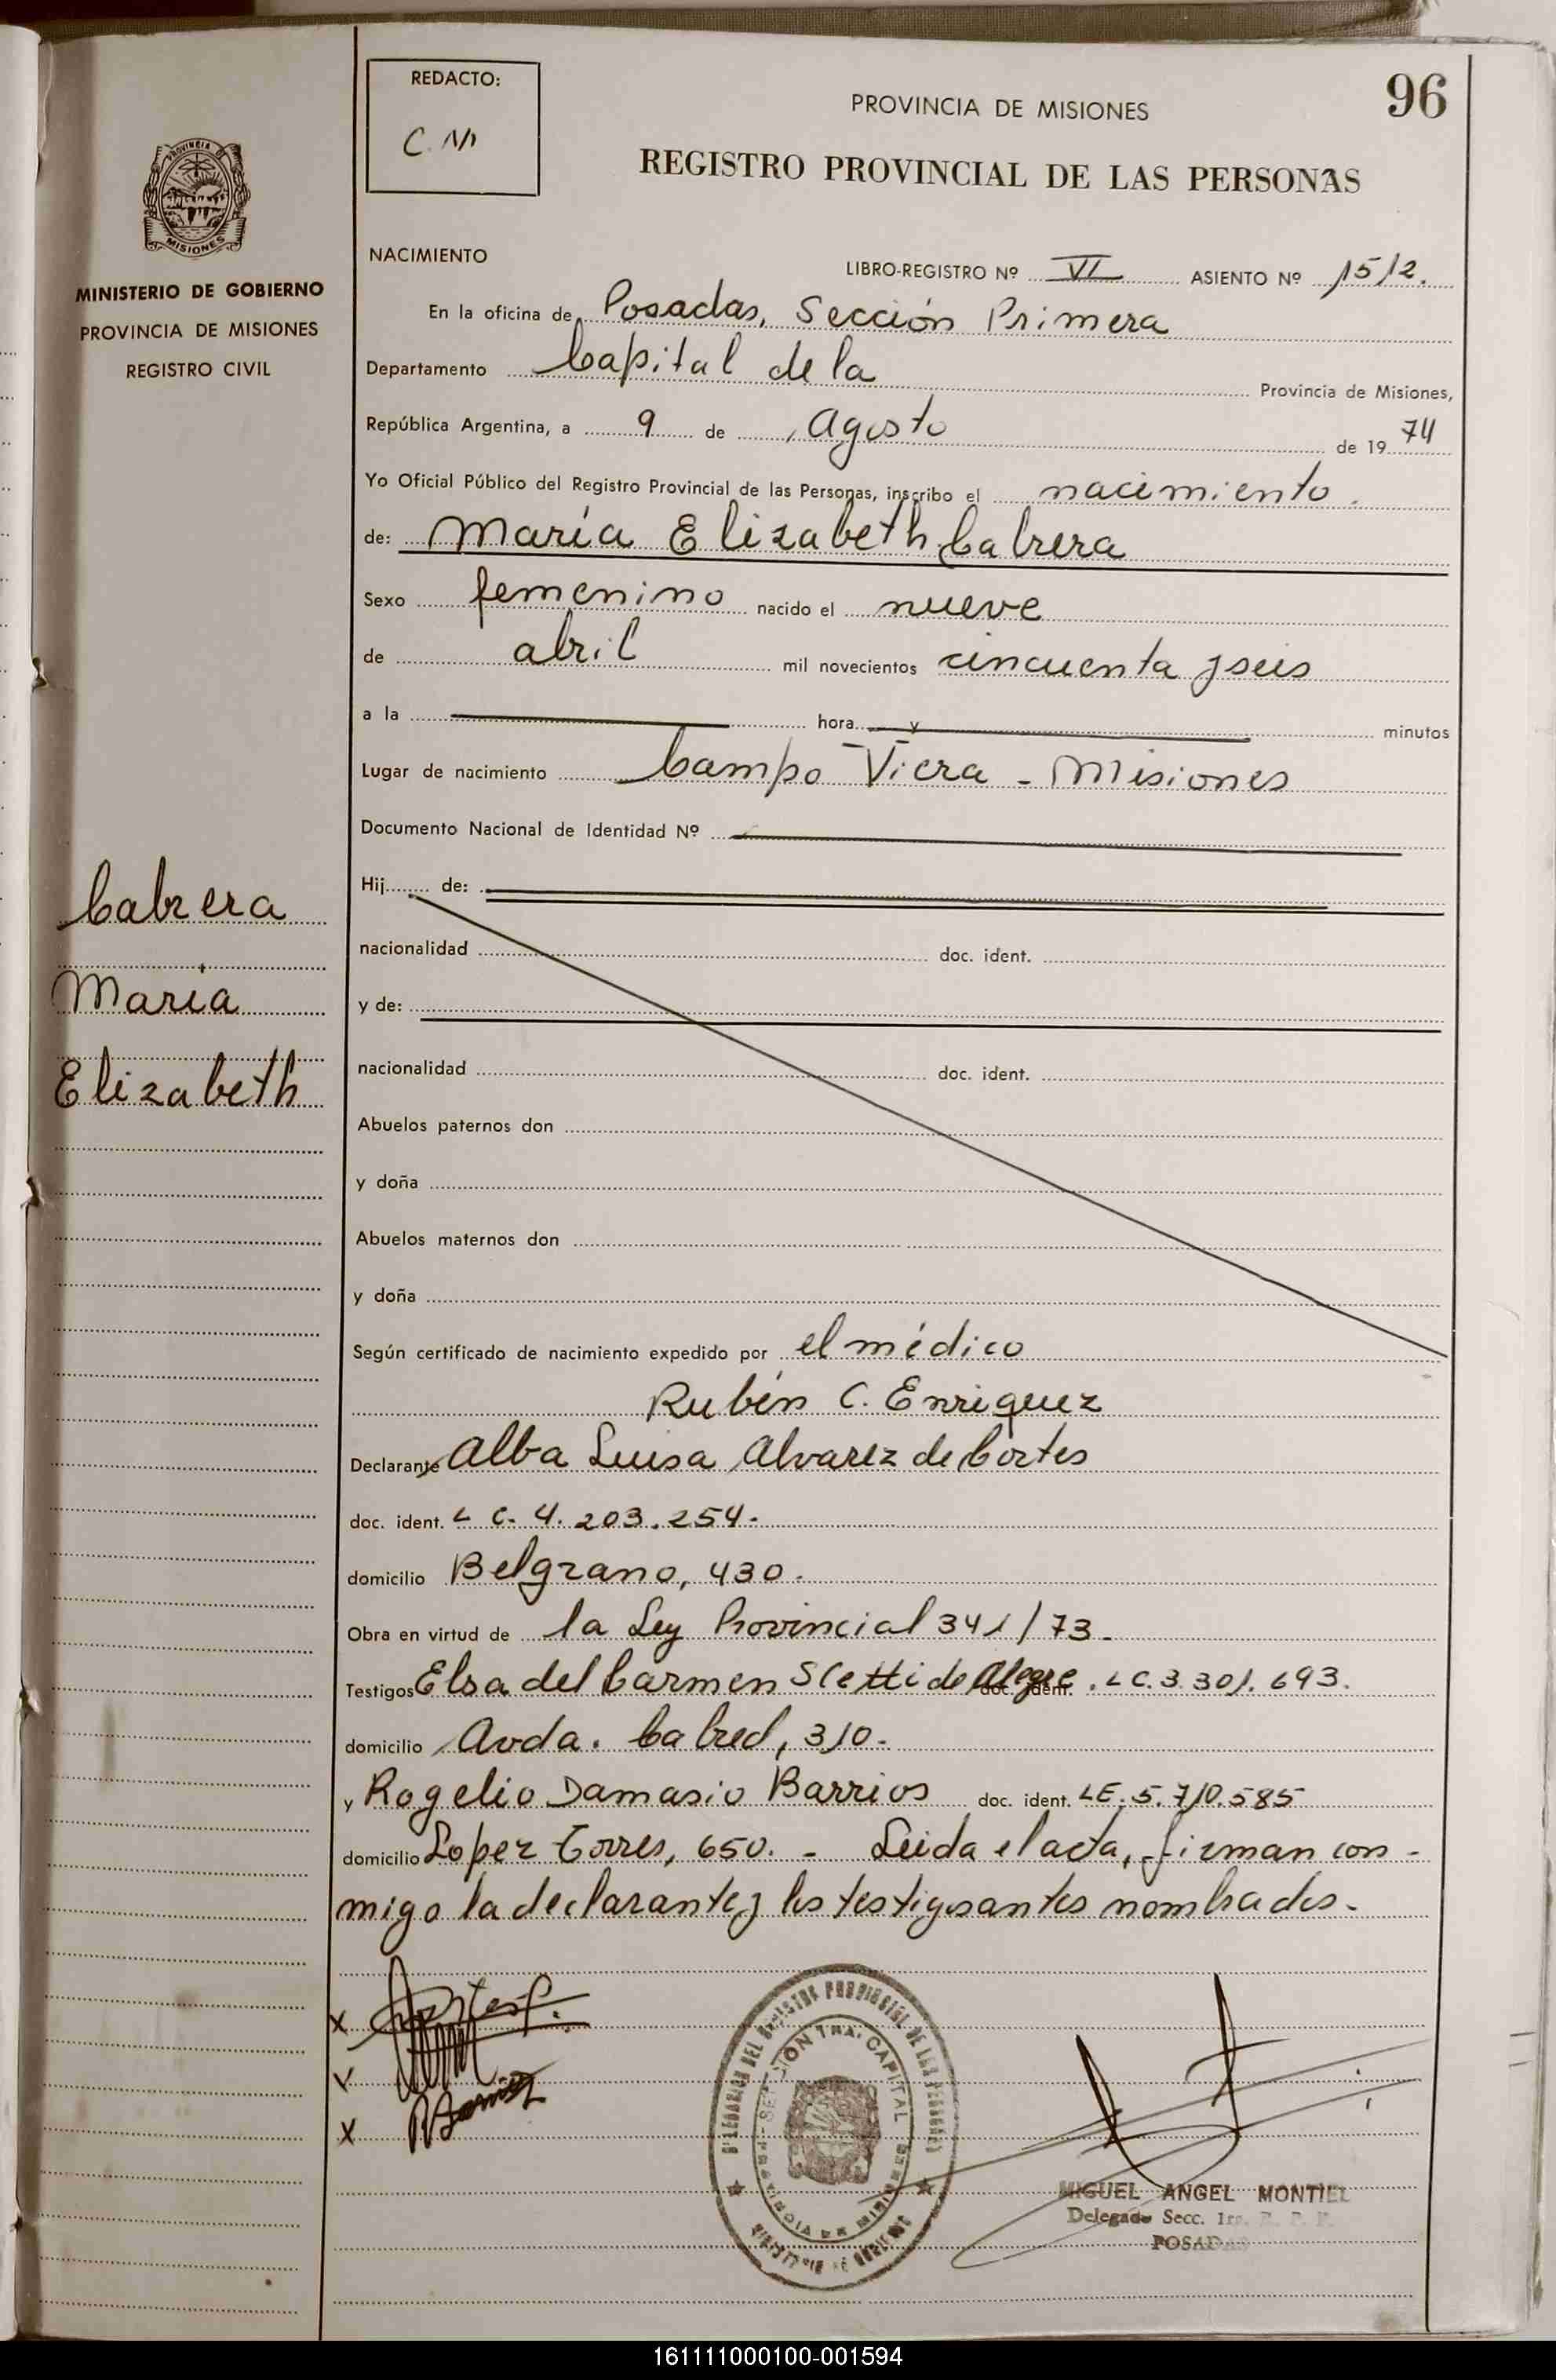 REDACTO:
C. M
PROVINCIA DE MISIONES
96
REGISTRO PROVINCIAL DE LAS PERSONAS
PROVINCIA D
MISIONES
MINISTERIO DE GOBIERNO
PROVINCIA DE MISIONES
REGISTRO CIVIL
NACIMIENTO
LIBRO-REGISTRO Nº VI ASIENTO Nº 1512.
En la oficina de Posadas, Sección Primera
Departamento Capital de la Provincia de Misiones,
República Argentina, a 9 de Agosto de 19 74
Yo Oficial Público del Registro Provincial de las Personas, inscribo el nacimiento.
de: María Elizabeth Cabrera
Sexo femenino nacido el nueve
de abril mil novecientos cincuenta y seis
a la hora y minutos
Lugar de nacimiento Campo Viera - Misiones
Documento Nacional de Identidad Nº
Hij de:
nacionalidad doc. ident.
y de:
nacionalidad doc. ident.
Abuelos paternos don
y doña
Abuelos maternos don
y doña
Cabrera
María
Elizabeth
Según certificado de nacimiento expedido por el médico
Rubén C. Enriquez
Declarante Alba Luisa Alvarez de Cortes
doc. ident. L C. 4. 203. 254.
domicilio Belgrano, 430.
Obra en virtud de la Ley Provincial 341/73.
Testigos Elsa del Carmen Scetti de Alegre doc. ident. L C. 3 301. 693.
domicilio Avda. Cabred, 310.
y Rogelio Damasio Barrios doc. ident. LE. 5. 710. 585
domicilio Lopez Torres, 650. - Leida el acta, firman con-
migo la declarante y los testigos antes nombrados.
X
V
X
DELEGACION DEL REGISTRO PROVINCIAL DE LAS PERSONAS
SECCION 1RA. CAPITAL
PROVINCIA DE MISIONES
MINISTERIO DE GOBIERNO
MIGUEL ANGEL MONTIEL
Delegado Secc. 1ra. R. P. P.
POSADAS
161111000100-001594